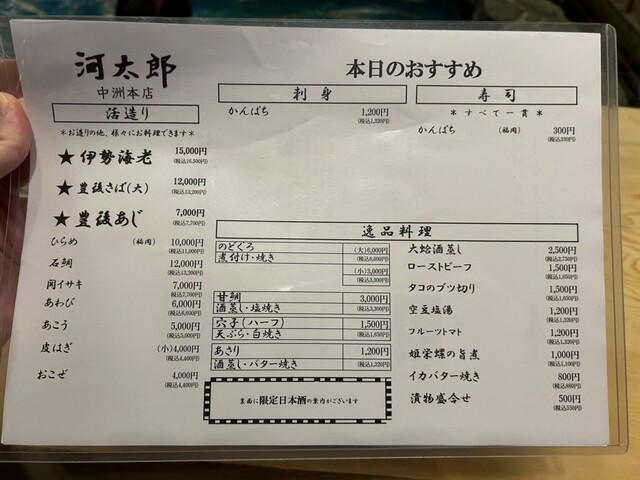 河太郎
中洲本店
活造り
＊お造りの他、様々にお料理できます＊
★伊勢海老 15,000円
(税込16,500円)
★豊後さば(大) 12,000円
(税込13,200円)
★豊後あじ 7,000円
(税込7,700円)
ひらめ (福岡) 10,000円
(税込11,000円)
石鯛 12,000円
(税込13,200円)
関イサキ 7,000円
(税込7,700円)
あわび 6,000円
(税込6,600円)
あこう 5,000円
(税込5,500円)
皮はぎ (小)4,000円
(税込4,400円)
おこぜ 4,000円
(税込4,400円)
本日のおすすめ
刺身
かんぱち 1,200円
(税込1,320円)
寿司
＊すべて一貫＊
かんぱち (福岡) 300円
(税込330円)
逸品料理
のどぐろ (大)6,000円
煮付け・焼き (税込6,600円)
(小)3,000円
(税込3,300円)
甘鯛 3,000円
酒蒸し・塩焼き (税込3,300円)
穴子(ハーフ) 1,500円
天ぷら・白焼き (税込1,650円)
あさり 1,200円
酒蒸し・バター焼き (税込1,320円)
大蛤酒蒸し 2,500円
(税込2,750円)
ローストビーフ 1,500円
(税込1,650円)
タコのブツ切り 1,500円
(税込1,650円)
空豆塩湯 1,200円
(税込1,320円)
フルーツトマト 1,200円
(税込1,320円)
姫栄螺の旨煮 1,000円
(税込1,100円)
イカバター焼き 800円
(税込880円)
漬物盛合せ 500円
(税込550円)
裏面に限定日本酒の案内がございます